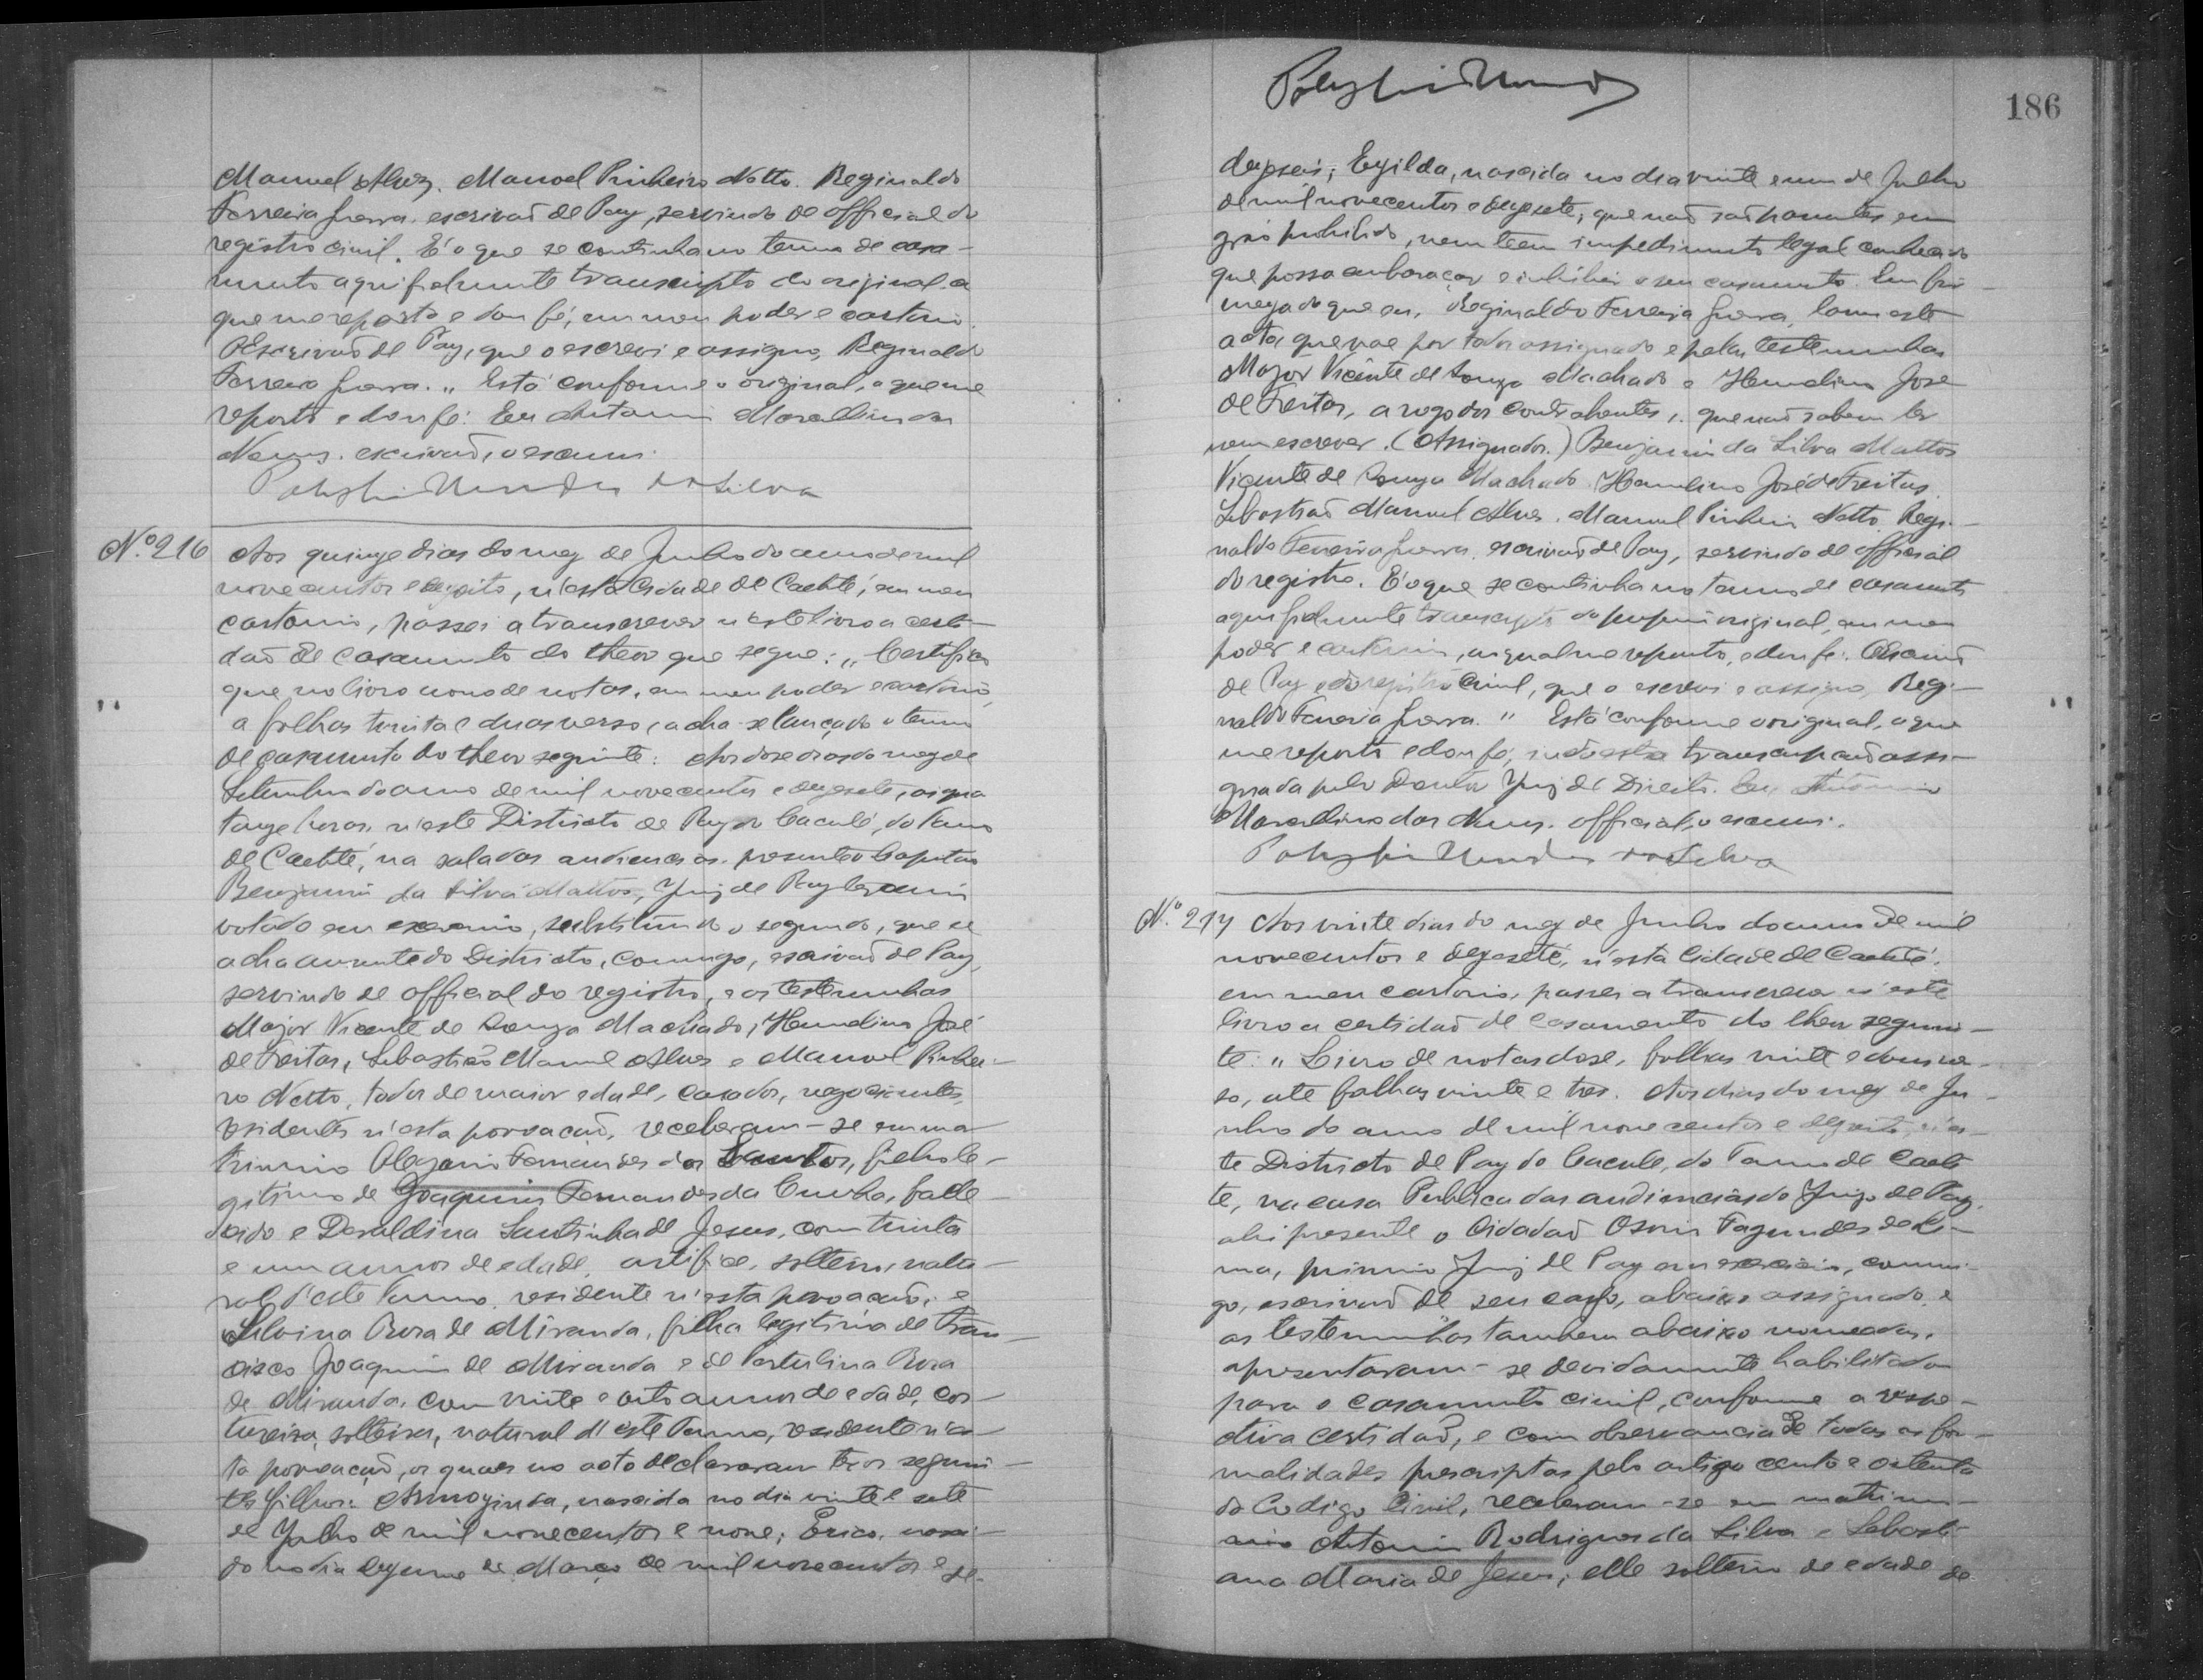 Manuel Alvez. Manoel Pinheiro Netto. Reginaldo
Ferreira Guerra, escrivaõ de Paz, servindo de official do
registro civil. É o que se continha no termo de casa-
mento aqui fielmente transcripto do original a
que me reporto e dou fé, em meu poder e cartorio.
O Escrivaõ de Paz, que o escrevi e assigno, Reginaldo
Ferreira Guerra. „ Está conforme o original, a que me
reporto e dou fé. Eu Antonio Marcellino das
Neves, escrivaõ, o escrevi.
Mendes da Silva
Nº 216 Aos quinze dias do mez de Junho do anno de mil
novecentos e dezoito, n'esta Cidade de Caetité, em meu
cartorio, passei a transcrever n'este livro a certi-
daõ de casamento do theor que segue: „ Certifico
que no livro nono de notas, em meu poder e cartorio,
a folhas trinta e duas verso, acha-se lançado o termo
de casamento do theor seguinte: Aos doze dias do mez de
Setembro do anno de mil novecentos e dezesete, as qua
torze horas, n'este Districto de Paz do Caculé, do Termo
de Caetité, na sala das audiencias, presente o Capitaõ
Benjamin da Silva Mattos, Juiz de Paz
votado em exercicio, substituindo o segundo, que se
acha auzente do Districto, comigo, escrivaõ de Paz,
servindo de official do registro, e as testemunhas
Major Vicente de Souza Machado, Hemelino José
de Freitas, Sebastião Manuel Alves e Manoel Pinhei-
ro Netto, todos de maior edade, casados, negociantes,
residentes n'esta povoação, receberam-se em ma-
trimonio Olegario Fernandes dos Santos, filho le-
gitimo de Joaquim Fernandes da Cunha, falle-
cido e Deraldina Santinha de Jesus, com trinta
e um annos de edade, artifice, solteiro, natu-
ral d'este Termo, residente n'esta povoação, e
Silvina Rosa de Miranda, filha legitima de Fran-
cisco Joaquim de Miranda e de Rosa
de Miranda, com vinte e oito annos de edade, cos-
tureira, solteira, natural d'este Termo, residente n'es-
ta povoação, os quaes no acto declararam ter os seguin-
tes filhos: nascida no dia vinte e sete
de Julho de mil novecentos e nove; Erico, nasci-
do no dia dezenove de Março de mil novecentos e de-
186
dezseis; Egilda, nascida no dia vinte e um de Julho
de mil novecentos e dezesete, que naõ saõ parentes em
gráo prohibido, nem teem impedimento legal conhecido
que possa embaraçar e inhibir o seu casamento. Em fir-
meza do que eu, Reginaldo Ferreira Guerra, lavrei este
acto, que vae por todos assignado e pelas testemunhas
Major Vicente de Souza Machado e Hemelino José
de Freitas, a rogo dos contrahentes, que naõ sabem ler
nem escrever. (Assignados.) Benjamin da Silva Mattos
Vicente de Souza Machado. Hemelino José de Freitas.
Sebastiaõ Manuel Alves. Manuel Pinheiro Netto. Regi-
naldo Ferreira Guerra, escrivaõ de Paz, servindo de official
do registro. É o que se continha no termo de casamento
aqui fielmente transcripto do proprio original, em meu
poder e cartorio, ao qual me reporto, e dou fé. O Escrivaõ
de Paz e do registro Civil, que o escrevi e assigno, Regi-
naldo Ferreira Guerra. „ Está conforme o original, a que
me reporto e dou fé, indo esta transcripçaõ assi-
gnada pelo Doutor Juiz de Direito. Eu Antonio
Marcellino das Neves, official, o escrevi.
Mendes da Silva
Nº 217 Aos vinte dias do mez de Junho do anno de mil
novecentos e dezesete, n'esta Cidade de Caetité,
em meu cartorio, passei a transcrever n'este
livro a certidaõ de casamento do theor seguin-
te: „ Livro de notas doze, folhas vinte e dous ver-
so, ate folhas vinte e tres. Aos dias do mez de Ju-
nho do anno de mil novecentos e dezoito, n'es-
te Districto de Paz do Caculé, do Termo de Caeti-
te, na casa Publica das audiencias do Juizo de Paz,
ahi presente o Cidadaõ Osorio Fagundes de Li-
ma, primeiro Juiz de Paz em exercicio, comi-
go, escrivaõ de seu cargo, abaixo assignado, e
as testemunhas tambem abaixo nomeadas,
apresentaram-se devidamente habilitados
para o casamento civil, conforme a respe-
ctiva certidaõ, e com observancia de todas as for-
malidades prescriptas pelo artigo cento e oitenta
do Codigo Civil, receberam-se em matrimo-
nio Antonio Rodrigues da Silva e Sebasti-
ana Maria de Jesus; elle solteiro de edade de